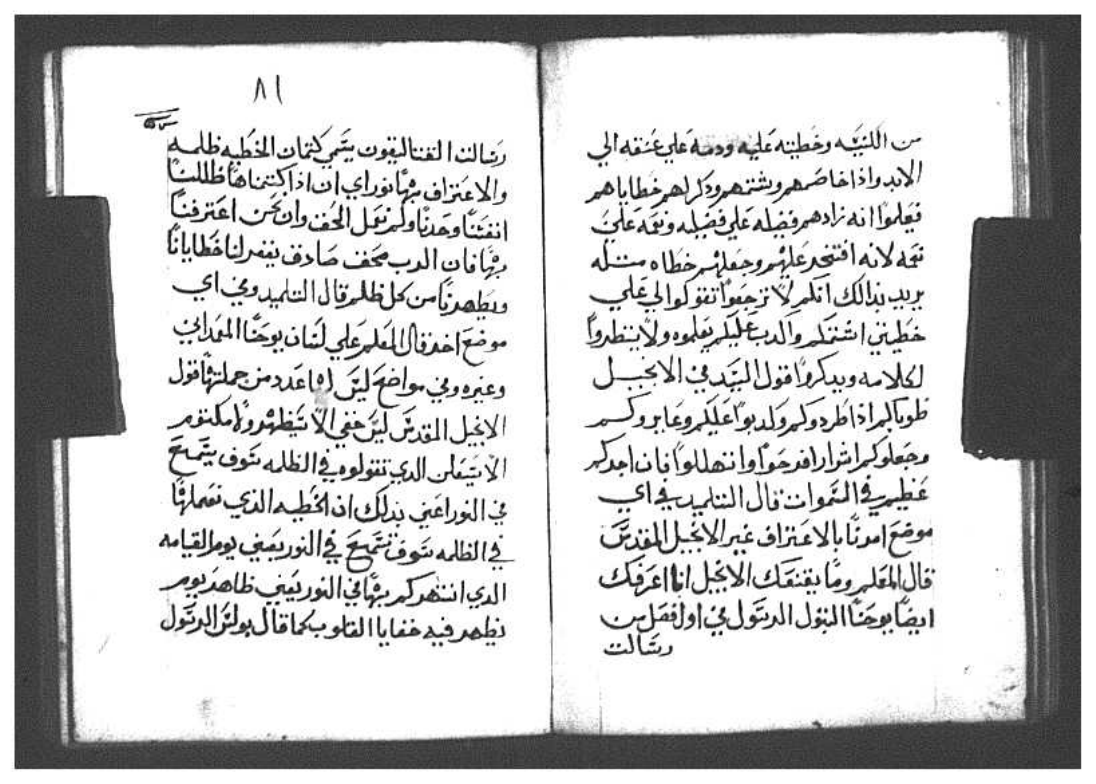 من الكنيسه وخطيته عليه ودمه علي عنقه الي
الابد واذا خاصمهم وشتمهم ودكر لهم خطاياهم
فعلموا انه زادهم فضله علي فضله ونقمه علي
نقمه لانه افتخد عليهم وجعلهم خطاه مثله
يريد بدالك انكم لا ترجعوا تتوكوا الي علي
خطيتي اشتمكم والدب عليكم يعلموه ولا ينتظروا
لكلامه ويدكروا قول السيد في الانجيل
طوباكم اذا طردوكم وكدبوا عليكم وعايروكم
وجعلوكم اشرارا افرحوا وانهللوا فان اجركم
عظيم في السموات قال التلميد في اي
موضع امرنا بالاعتراف غير الانجيل المقدس
قال المعلم وما يقنعك الانجيل انا اعرفك
ايضا يوحنا البتول الرسول في اول فصل من
رسالت
٨١
رسالت القتاليقون يسمي كتمان الخطيه ظلمه
والاعتراف بها نور اي ان اذا كتمناها ظللنا
انفسنا وحدنا ولم نعمل الحق وان نحن اعترفنا
بها فان الرب محق صادق يغفر لنا خطايانا
ويطهرنا من كل ظلم قال التلميد وفي اي
موضع اخر قال المعلم علي لسان يوحنا المعمداني
وغيره وفي مواضع ليس لها عدد من جملتها قول
الانجيل المقدس ليس خفي الا سيظهر ولا مكتوم
الا سيعلن الدي تقولوه في الظلمه سوف يسمع
في النور اعني بدلك ان الخطيه الذي نعملها
في الظلمه سوف تسمع في النور يعني يوم القيامه
الدي انتهركم بها في النور يعني ظاهر يوم
تظهر فيه خفايا القلوب كما قال بولس الرسول